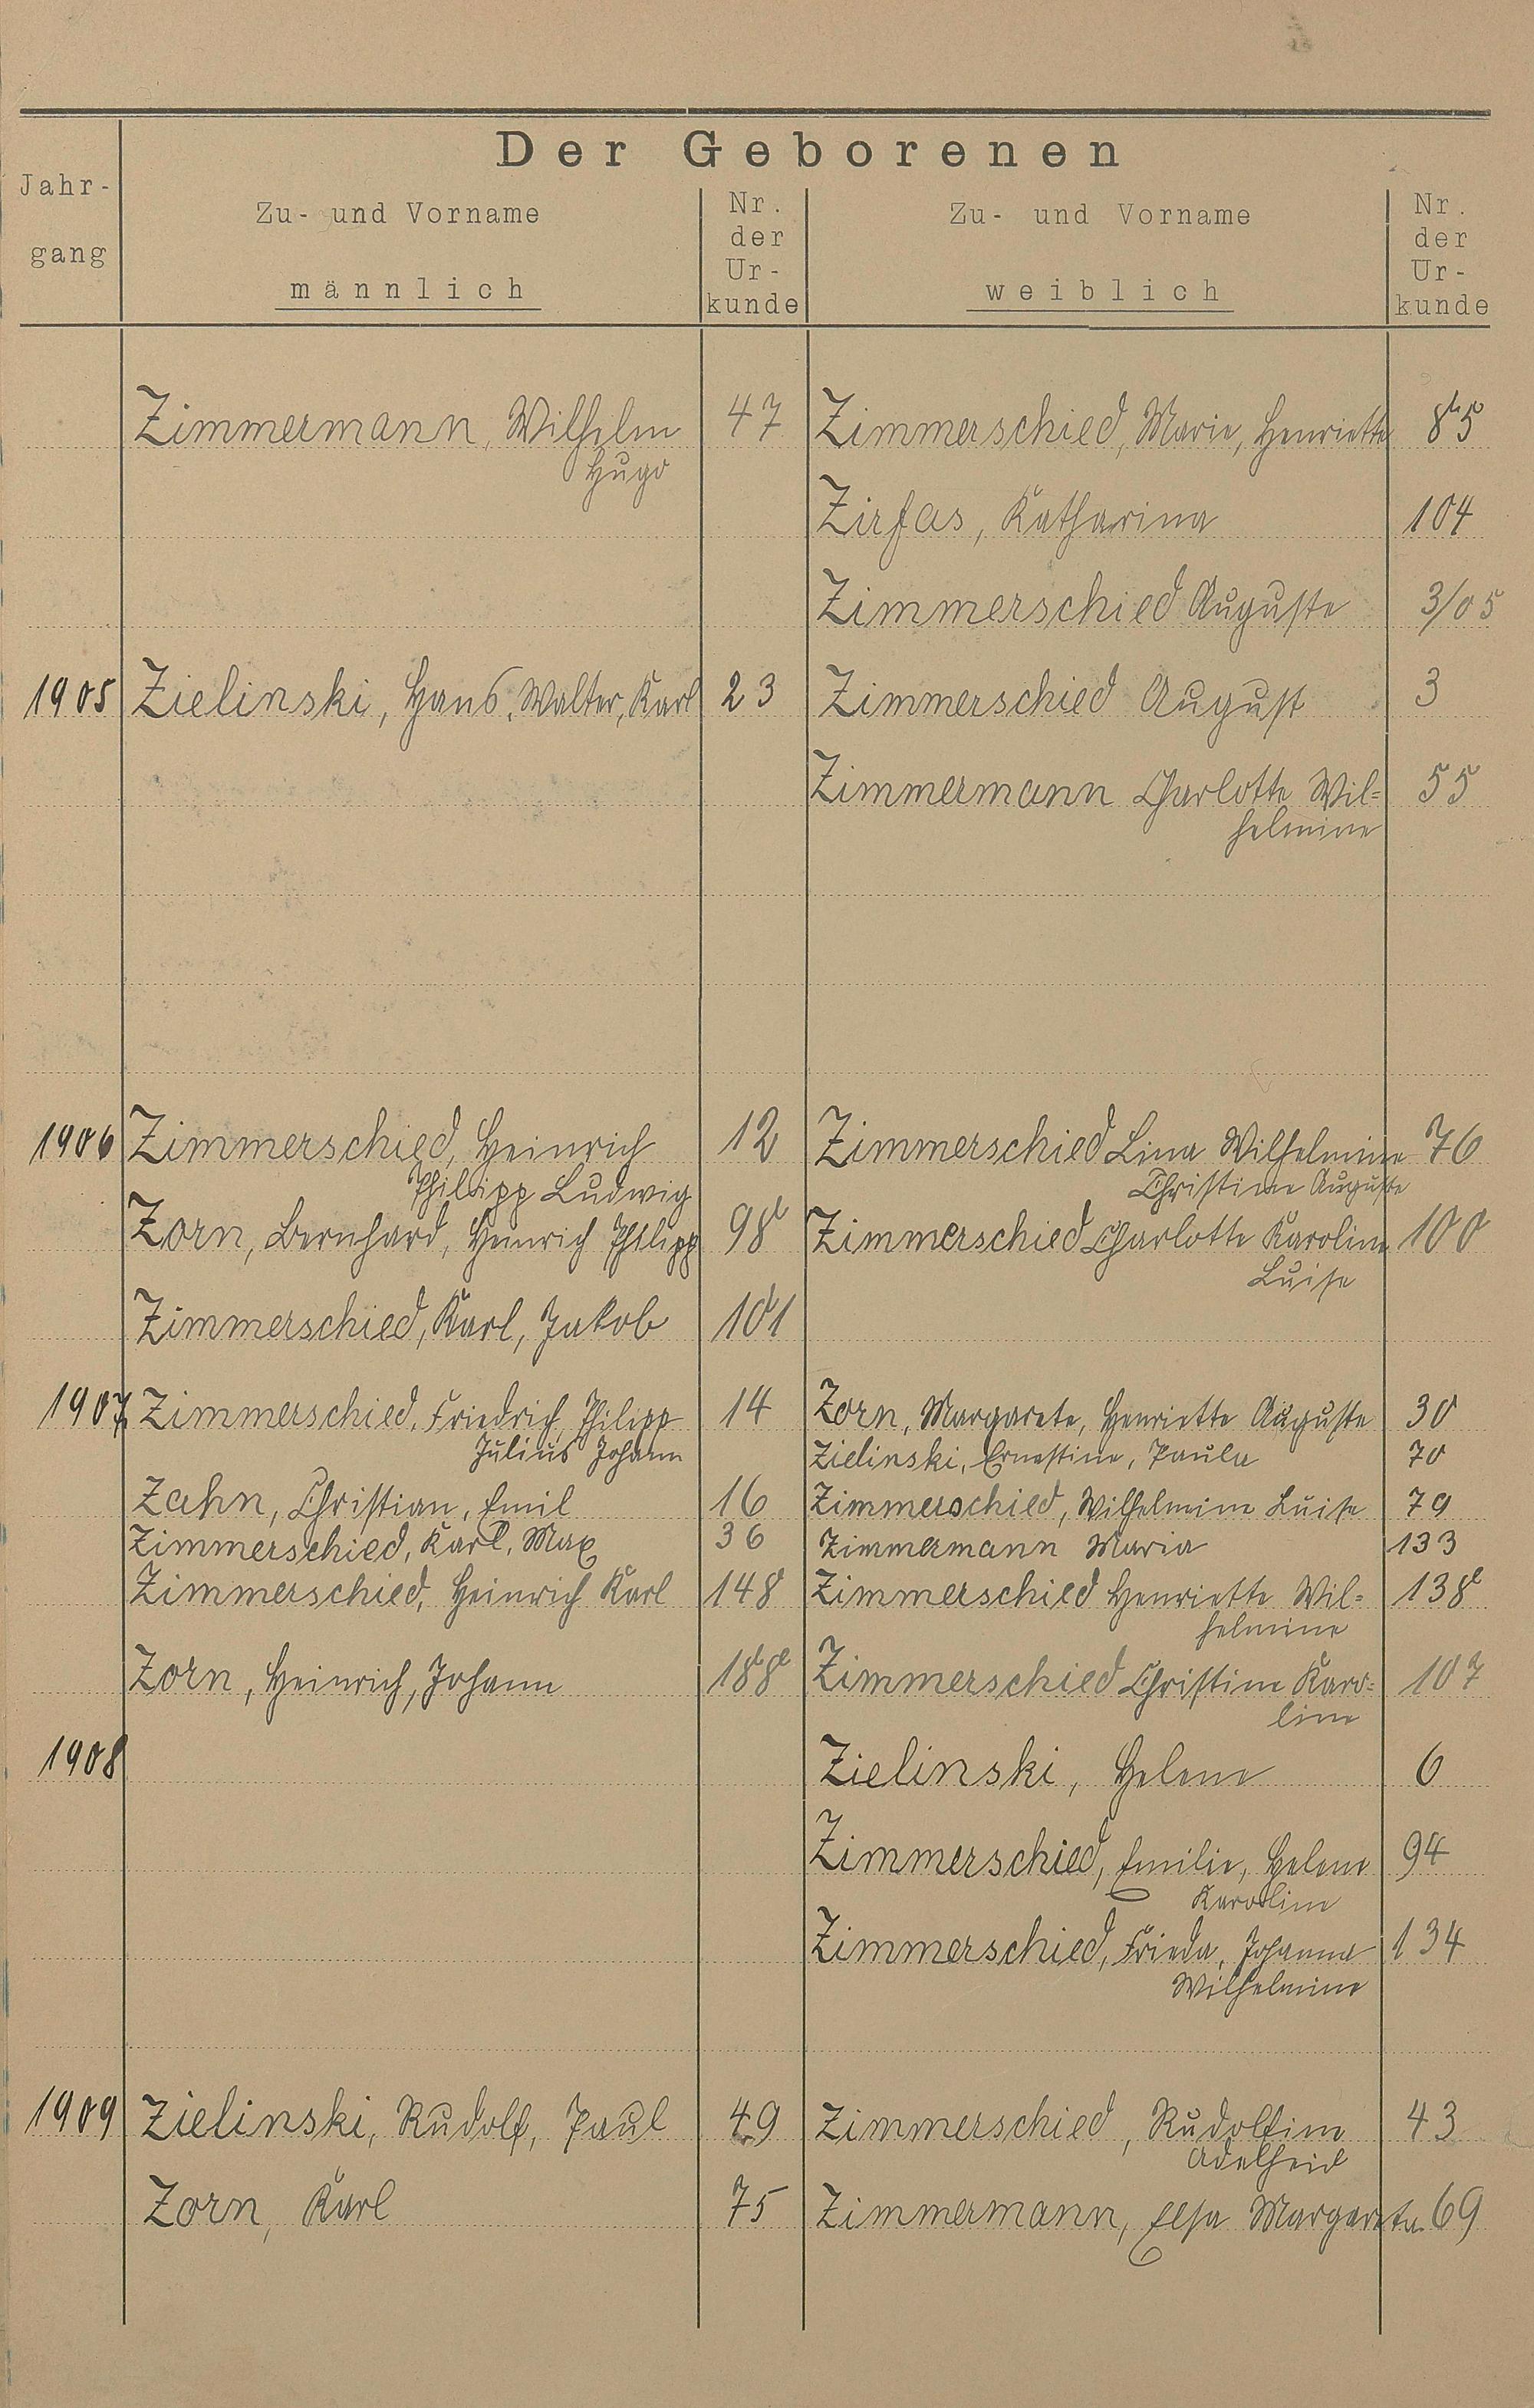 Der Geborenen
Jahr-
gang
Zu- und Vorname
männlich
Nr.
der
Ur-
kunde
Zu- und Vorname
weiblich
Nr.
der
Ur-
kunde
Zimmermann, Wilhelm 47 Zimmerschied, Marie, Henriette 85
Hugo
Zirfas, Katharina 104
Zimmerschied Auguste 3/05
1905 Zielinski, Hans, Walter, Karl 23 Zimmerschied August 3
Zimmermann Charlotte Wil= 55
helmine
1906 Zimmerschied, Heinrich 12 Zimmerschied Lina Wilhelmine 76
Philipp Ludwig Christine Auguste
Zorn, Bernhard, Heinrich Philipp 98 Zimmerschied Charlotte Karoline 100
Luise
Zimmerschied, Karl, Jakob 101
1907 Zimmerschied, Friedrich, Philipp 14 Zorn, Margarete, Henriette Auguste 30
Julius Johann Zielinski, Ernestine, Paula 70
Zahn, Christian, Emil 16 Zimmerschied, Wilhelmine Luise 79
Zimmerschied, Karl, Max 36 Zimmermann Maria 133
Zimmerschied, Heinrich Karl 148 Zimmerschied Henriette Wil= 138
helmine
Zorn, Heinrich, Johann 188 Zimmerschied Christine Karo= 107
line
1908 Zielinski, Helene 6
Zimmerschied, Emilie, Helene 94
Karoline
Zimmerschied, Frieda, Johanna 134
Wilhelmine
1909 Zielinski, Rudolf, Paul 49 Zimmerschied, Rudolfine 43
Adelheid
Zorn, Karl 75 Zimmermann, Elsa Margareta 69